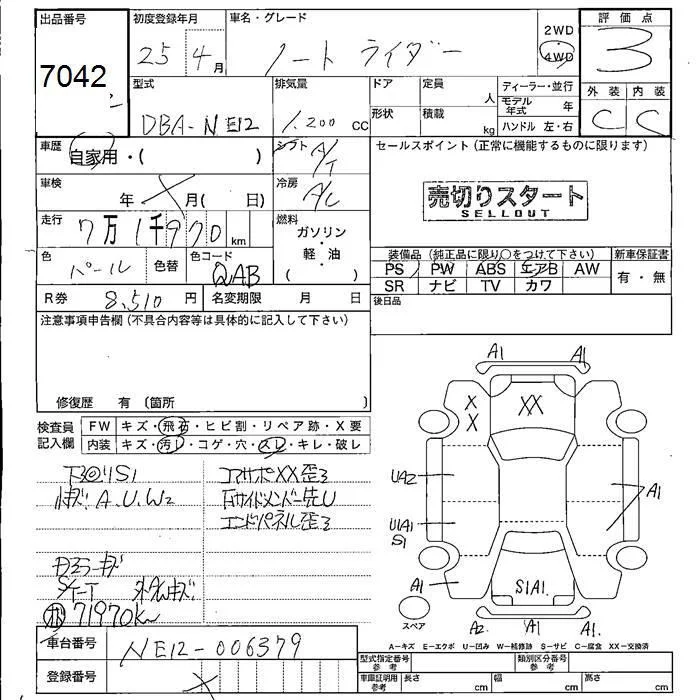 出品番号 初度登録年月 車名・グレード 評価点
7042 25年4月 ノート ライダー 2WD 4WD 3
型式 排気量 ドア 定員 人 ディーラー・並行
外装 内装
DBA-NE12 1.200 cc 形状 積載 kg モデル年式 年 ハンドル 左・右 C C
車歴 自家用・( ) シフト A/T セールスポイント (正常に機能するものに限ります)
車検 年 月( 日) 冷房 A/C
売切りスタート
SELLOUT
走行 7万1千970km 燃料 ガソリン・軽・油 ( )
色 パール 色替 色コード QAB
装備品 (純正品に限り○をつけて下さい) 新車保証書
PS PW ABS エアB AW 有・無
SR ナビ TV カワ
R券 8,510円 名変期限 月 日 後日品
注意事項申告欄 (不具合内容等は具体的に記入して下さい)
修復歴 有 〔箇所 〕
検査員記入欄 FW キズ・飛石・ヒビ割・リペア跡・X要
内装 キズ・汚レ・コゲ・穴・スレ・キレ・破レ
コアサポXX歪3
A.U.W2
エンドパネル歪3
71970km
A1 A1
XX
X
X
UA2
U1A1
S1
A1
A1
S1A1.
A2 A1 A1.
スペア
A-キズ E-エクボ U-凹み W-補修跡 S-サビ C-腐食 XX-交換済
車台番号 NE12-006379
登録番号
型式指定番号 参考 類別区分番号 参考
車庫証明用 参考 長さ cm 幅 cm 高さ cm